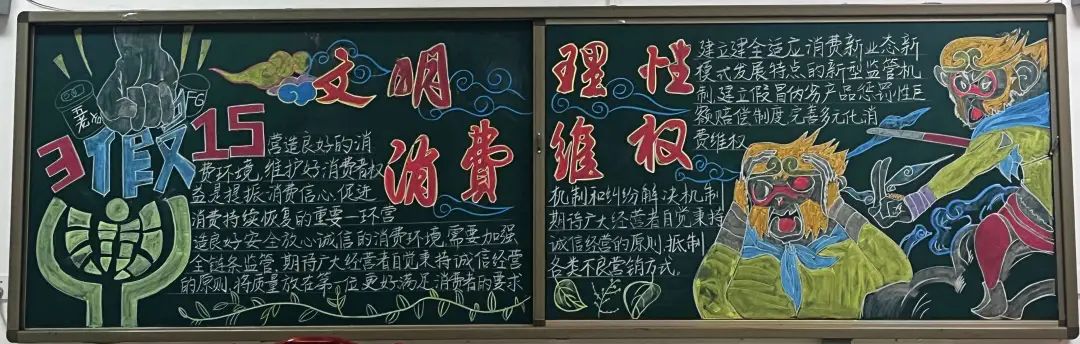 3假15
文明
消费
营造良好的消
费环境,维护好消费者权
益是提振消费信心,促进
消费持续恢复的重要一环营
造良好安全放心诚信的消费环境,需要加强
全链条监管,期待广大经营者自觉秉持诚信经营
的原则,将质量放在第一位更好满足消费者的要求
理性
维权
建立建全适应消费新业态新
模式发展特点的新型监管机
制建立假冒伪劣产品惩罚性巨
额赔偿制度,完善多元化消
费维权
机制和纠纷解决机制
期待广大经营者自觉秉持
诚信经营的原则,抵制
各类不良营销方式。